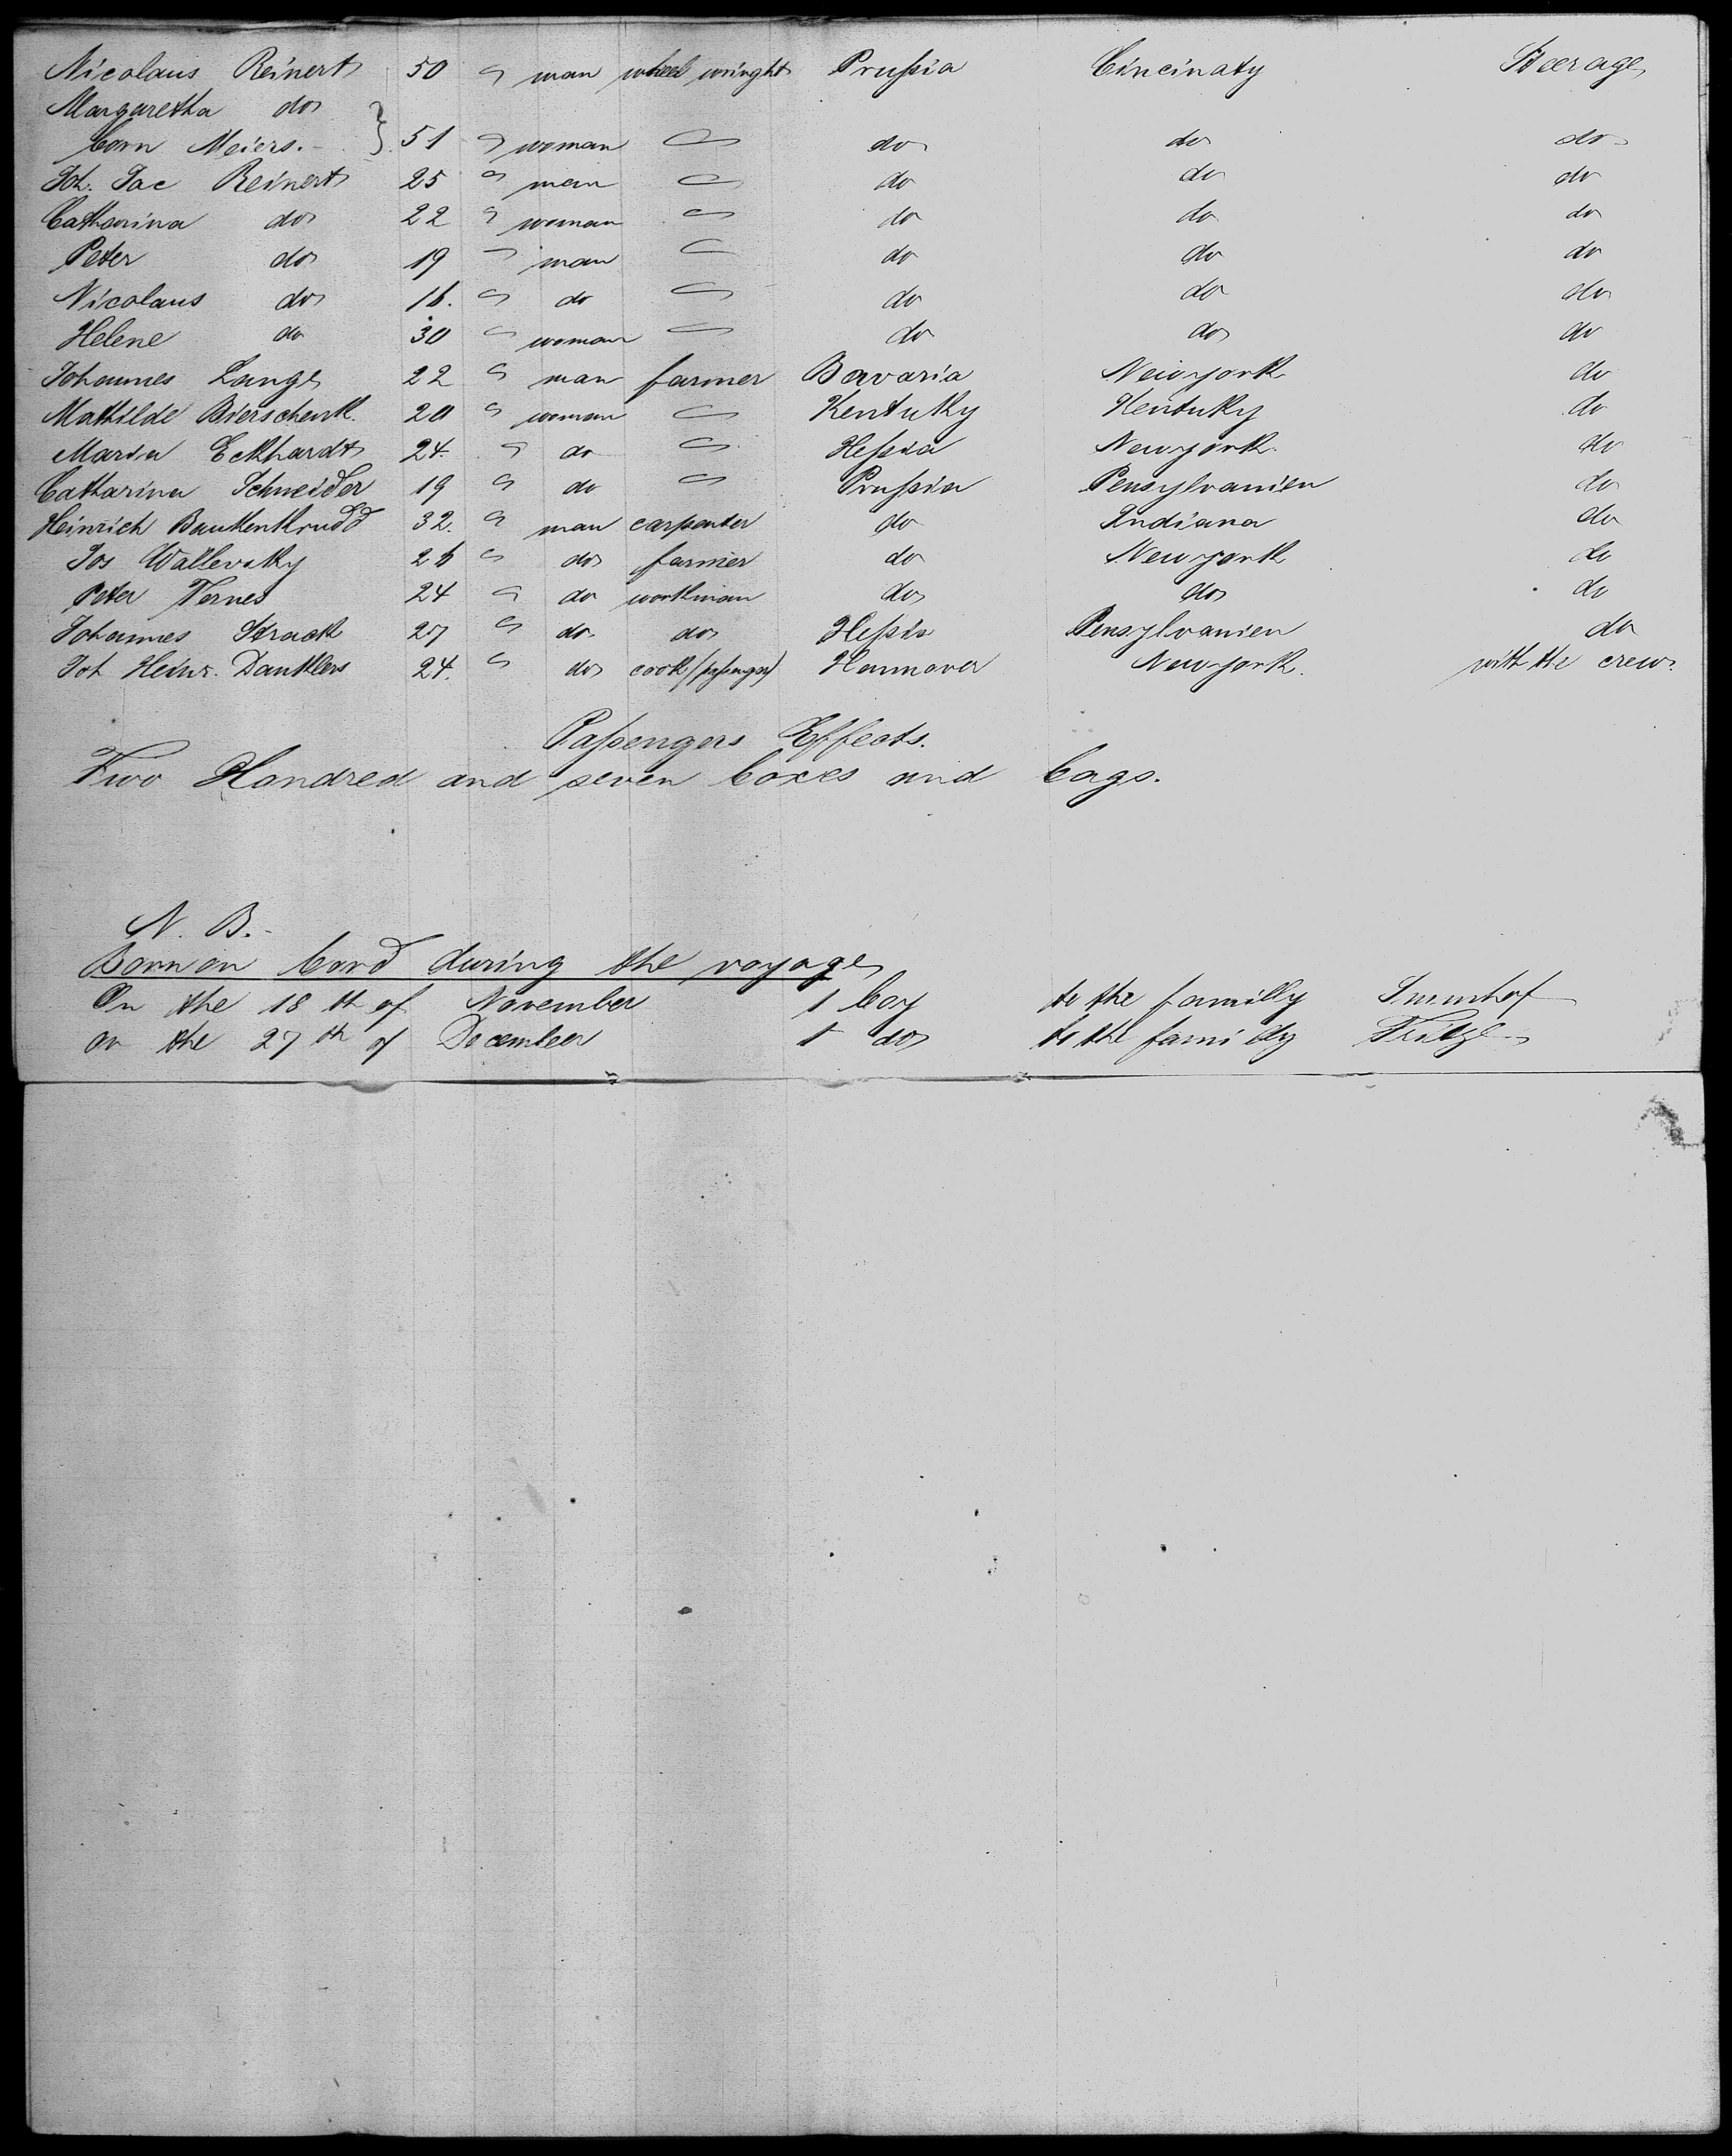 Nicolaus Reinert 50 " man wheel wright Prussia Cincinaty Steerage
Margaretha do
born Meiers. - } 51 " woman — do do do
Joh. Jac Reinert 25 " man — do do do
Catharina do 22 " woman — do do do
Peter do 19 " man — do do do
Nicolaus do 16. " do — do do do
Helene do 30 " woman — do do do
Johannes Lange 22 " man farmer Bavaria Newyork do
Mathilde Bierschenk. 20 " woman — Kentuky Kentuky do
Maria Eckhardt 24. " do — Hessia Newyork. do
Catharina Schneider 19 " do — Prussia Pensylvanien do
Heinrich 32. " man carpenter do Indiana do
Jos Wallevsky 26 " do farmer do Newyork do
Peter Ternes 24 " do workman do do do
Johannes Strack 27 " do do Hessia Pensylvanien do
Joh Heinr. Danklers 24. " do cook (passenger) Hannover Newyork. with the crew.
Passengers Effects.
Two Handred and seven boxes and bags.
N. B.-
Born on bord during the voyage
On the 18th of November 1 boy to the familly Immhof
on the 27th of December 1 do to the familly Fritze